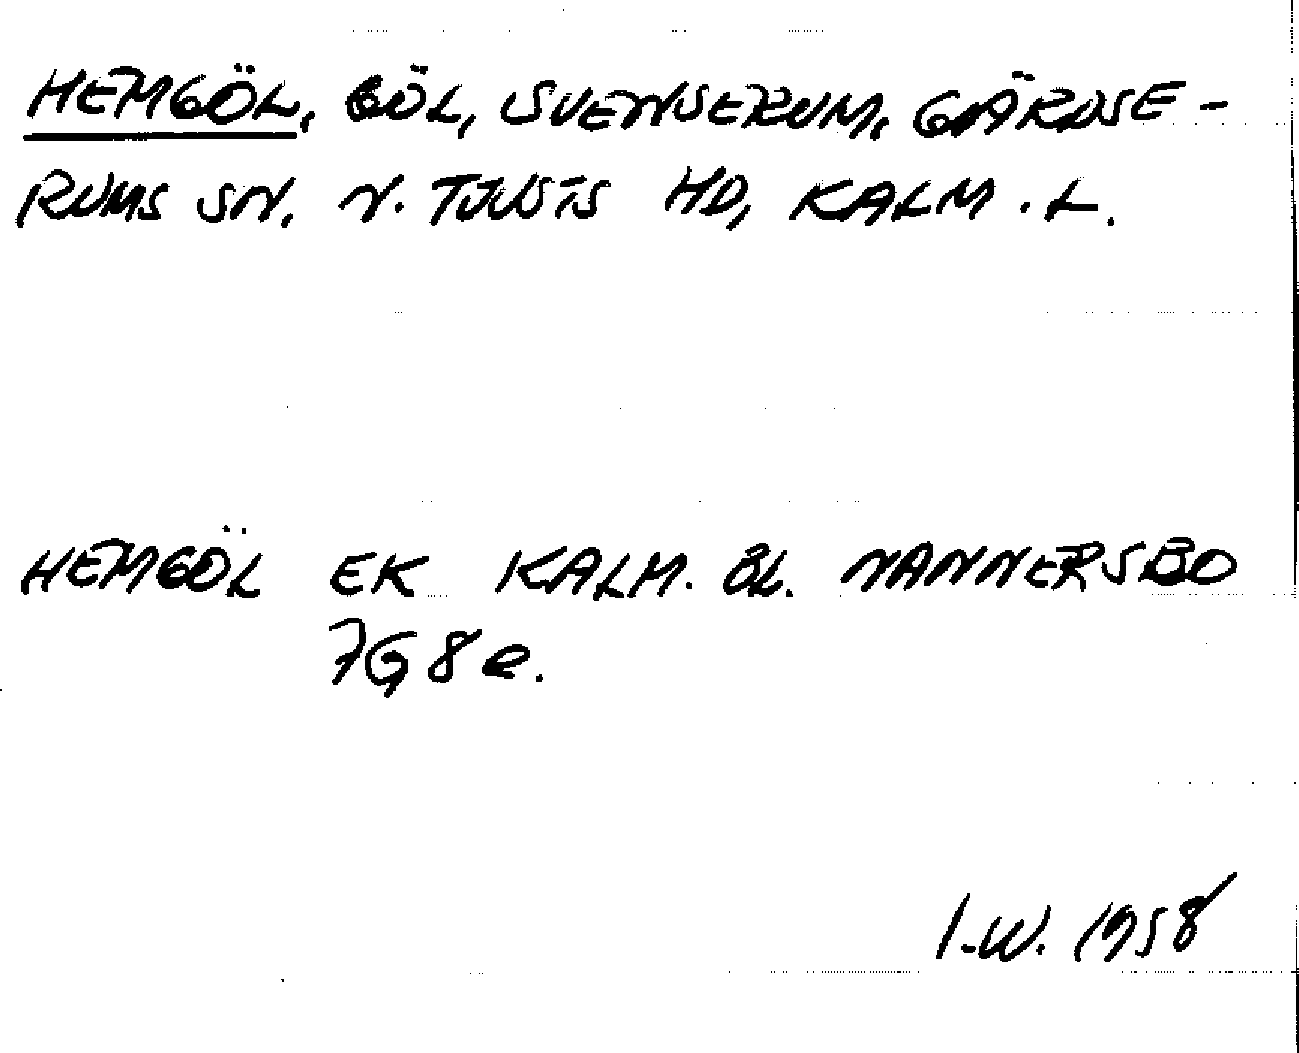 HEMGÖL, GÖL, SVENSERUM, GÄRDSE-
RUMS SN. N. TJUSTS HD, KALM. L.
HEMGÖL EK KALM. BL. NANNERSBO
7G 8e.
I.W. 1958